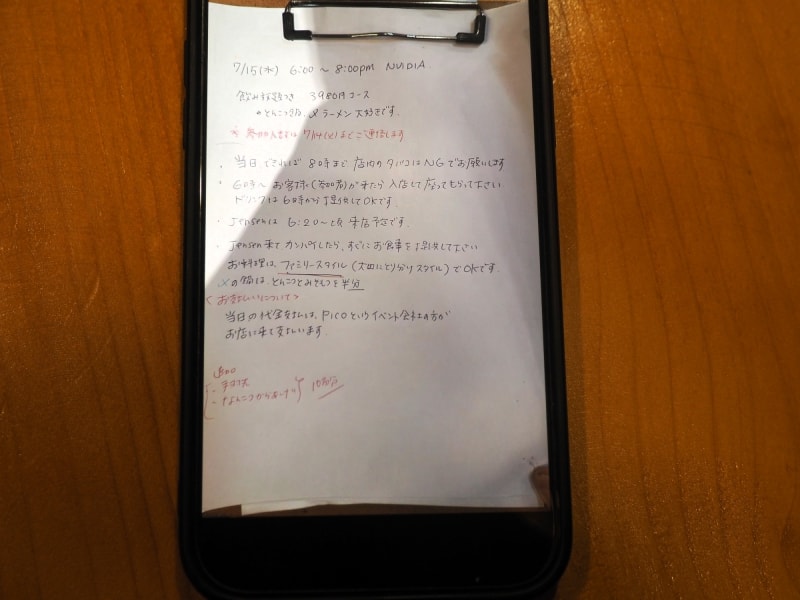 7/15(水) 6:00 ～ 8:00pm NVIDIA.
飲み放題つき 3980円コース
*とんこつ &ラーメン 大好きです。
※ 参加人数は 7/14(火)までにご連絡します
・当日 できれば 8時まで 店内のタバコはNGでお願いします
・6時〜 お客様(参加者)が来たら 入店して座ってもらって下さい
ドリンクは 6時から提供してOKです。
・Jensenは 6:20〜頃 来店予定です。
・Jensen来て カンパイしたら、すぐにお食事を提供して下さい
お料理は、ファミリースタイル(大皿にとりわけスタイル)でOKです。
の鍋は、とんこつとみそもつを半分
<お支払いについて>
当日の代金支払いは、Picoというイベント会社の方が
お店に来て支払います。
追加
- なんこつからあげ